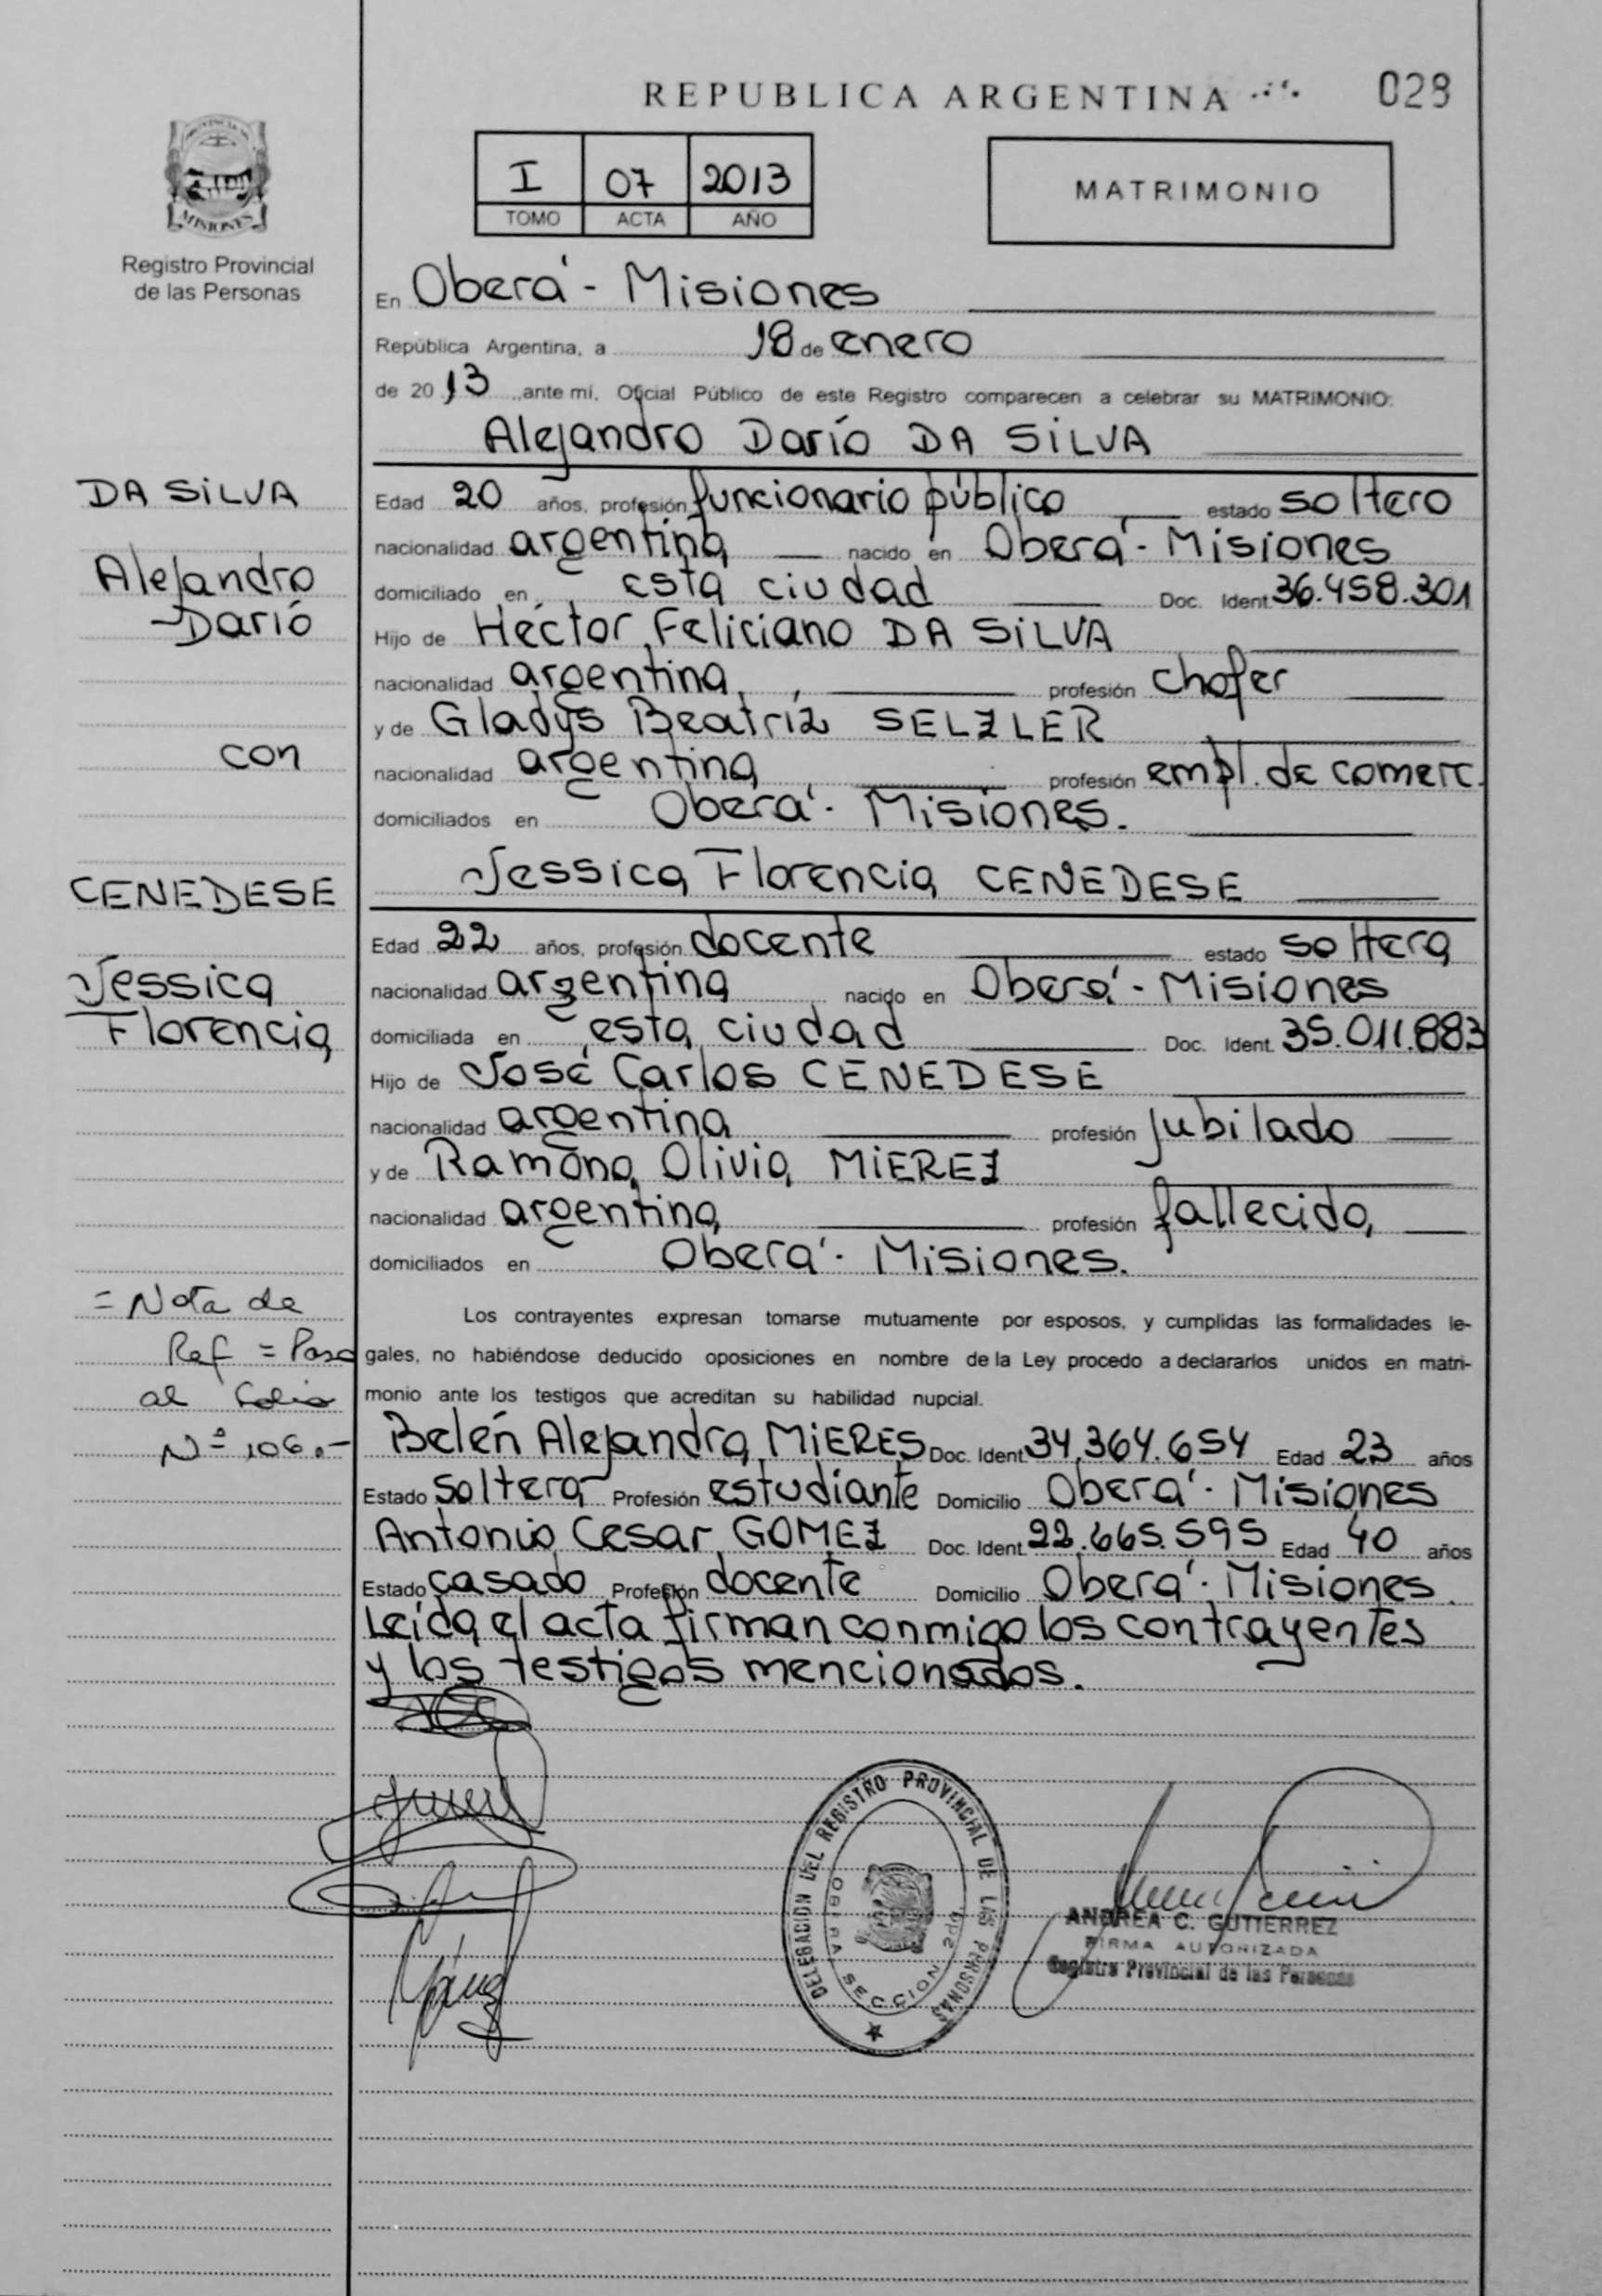 REPUBLICA ARGENTINA
029
PROVINCIA DE
MISIONES
Registro Provincial
de las Personas
I 07 2013
TOMO ACTA AÑO
MATRIMONIO
En Oberá - Misiones
República Argentina, a 18 de enero
de 2013, ante mí, Oficial Público de este Registro comparecen a celebrar su MATRIMONIO:
Alejandro Darío DA SILVA
DA SILVA
Alejandro
Darío
con
CENEDESE
Jessica
Florencia
Edad 20 años, profesión funcionario público estado soltero
nacionalidad argentina nacido en Oberá - Misiones
domiciliado en esta ciudad Doc. Ident. 36.458.301
Hijo de Héctor Feliciano DA SILVA
nacionalidad argentina profesión chofer
y de Gladys Beatríz SELZLER
nacionalidad argentina profesión empl. de comerc.
domiciliados en Oberá - Misiones.
Jessica Florencia CENEDESE
Edad 22 años, profesión docente estado soltera
nacionalidad argentina nacido en Oberá - Misiones
domiciliada en esta ciudad Doc. Ident. 35.011.883
Hijo de José Carlos CENEDESE
nacionalidad argentina profesión jubilado
y de Ramona Olivia MIEREZ
nacionalidad argentina profesión fallecida
domiciliados en Oberá - Misiones.
= Nota de
Ref = Pasa
al Folio
Nº 106.-
Los contrayentes expresan tomarse mutuamente por esposos, y cumplidas las formalidades le-
gales, no habiéndose deducido oposiciones en nombre de la Ley procedo a declararlos unidos en matri-
monio ante los testigos que acreditan su habilidad nupcial.
Belén Alejandra MIERES Doc. Ident. 34.364.654 Edad 23 años
Estado soltera Profesión estudiante Domicilio Oberá - Misiones
Antonio Cesar GOMEZ Doc. Ident. 22.665.595 Edad 40 años
Estado casado Profesión docente Domicilio Oberá - Misiones.
Leída el acta firman conmigo los contrayentes
y los testigos mencionados.
DELEGACION DEL REGISTRO PROVINCIAL DE LAS PERSONAS
SECCION
ANDREA C. GUTIERREZ
FIRMA AUTORIZADA
Registro Provincial de las Personas